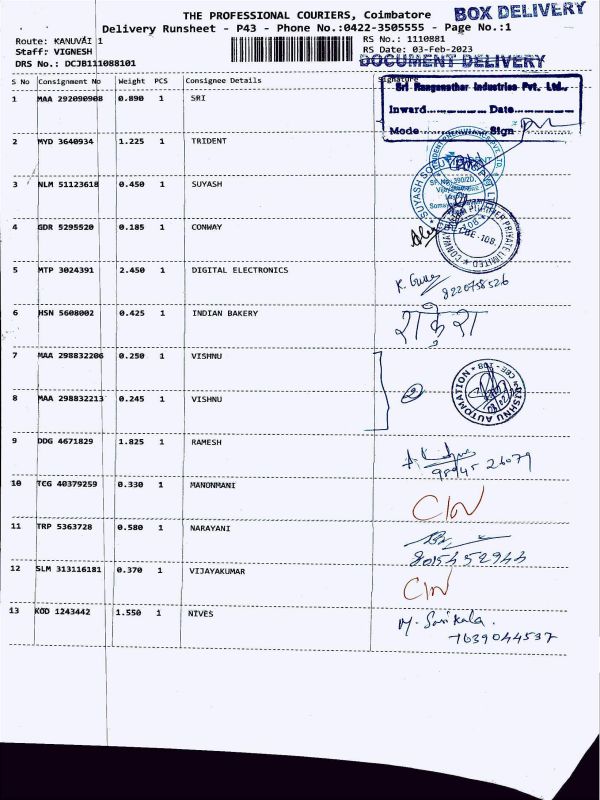 THE PROFESSIONAL COURIERS, Coimbatore
BOX DELIVERY
Delivery Runsheet - P43 - Phone No.:0422-3505555 - Page No.:1
Route: KANUVAI 1
RS No.: 1110881
Staff: VIGNESH
RS Date: 03-Feb-2023
DRS No.: DCJB111088101
DOCUMENT DELIVERY
S No Consignment No Weight PCS Consignee Details Signature
Sri Ranganathar Industries Pvt. Ltd.,
1 MAA 292090908 0.890 1 SRI
Inward Date
Mode Sign
2 MYD 3640934 1.225 1 TRIDENT
3 NLM 51123618 0.450 1 SUYASH
4 GDR 5295520 0.185 1 CONWAY
5 MTP 3024391 2.450 1 DIGITAL ELECTRONICS
8220758526
6 HSN 5608002 0.425 1 INDIAN BAKERY राकेश
7 MAA 298832206 0.250 1 VISHNU
VISHNU AUTOMATION * CBE -
8 MAA 298832213 0.245 1 VISHNU 2
9 DDG 4671829 1.825 1 RAMESH
26079
10 TCG 40379259 0.330 1 MANONMANI
11 TRP 5363728 0.580 1 NARAYANI
12 SLM 313116181 0.370 1 VIJAYAKUMAR
13 KOD 1243442 1.550 1 NIVES M. Sasikala.
7639044537